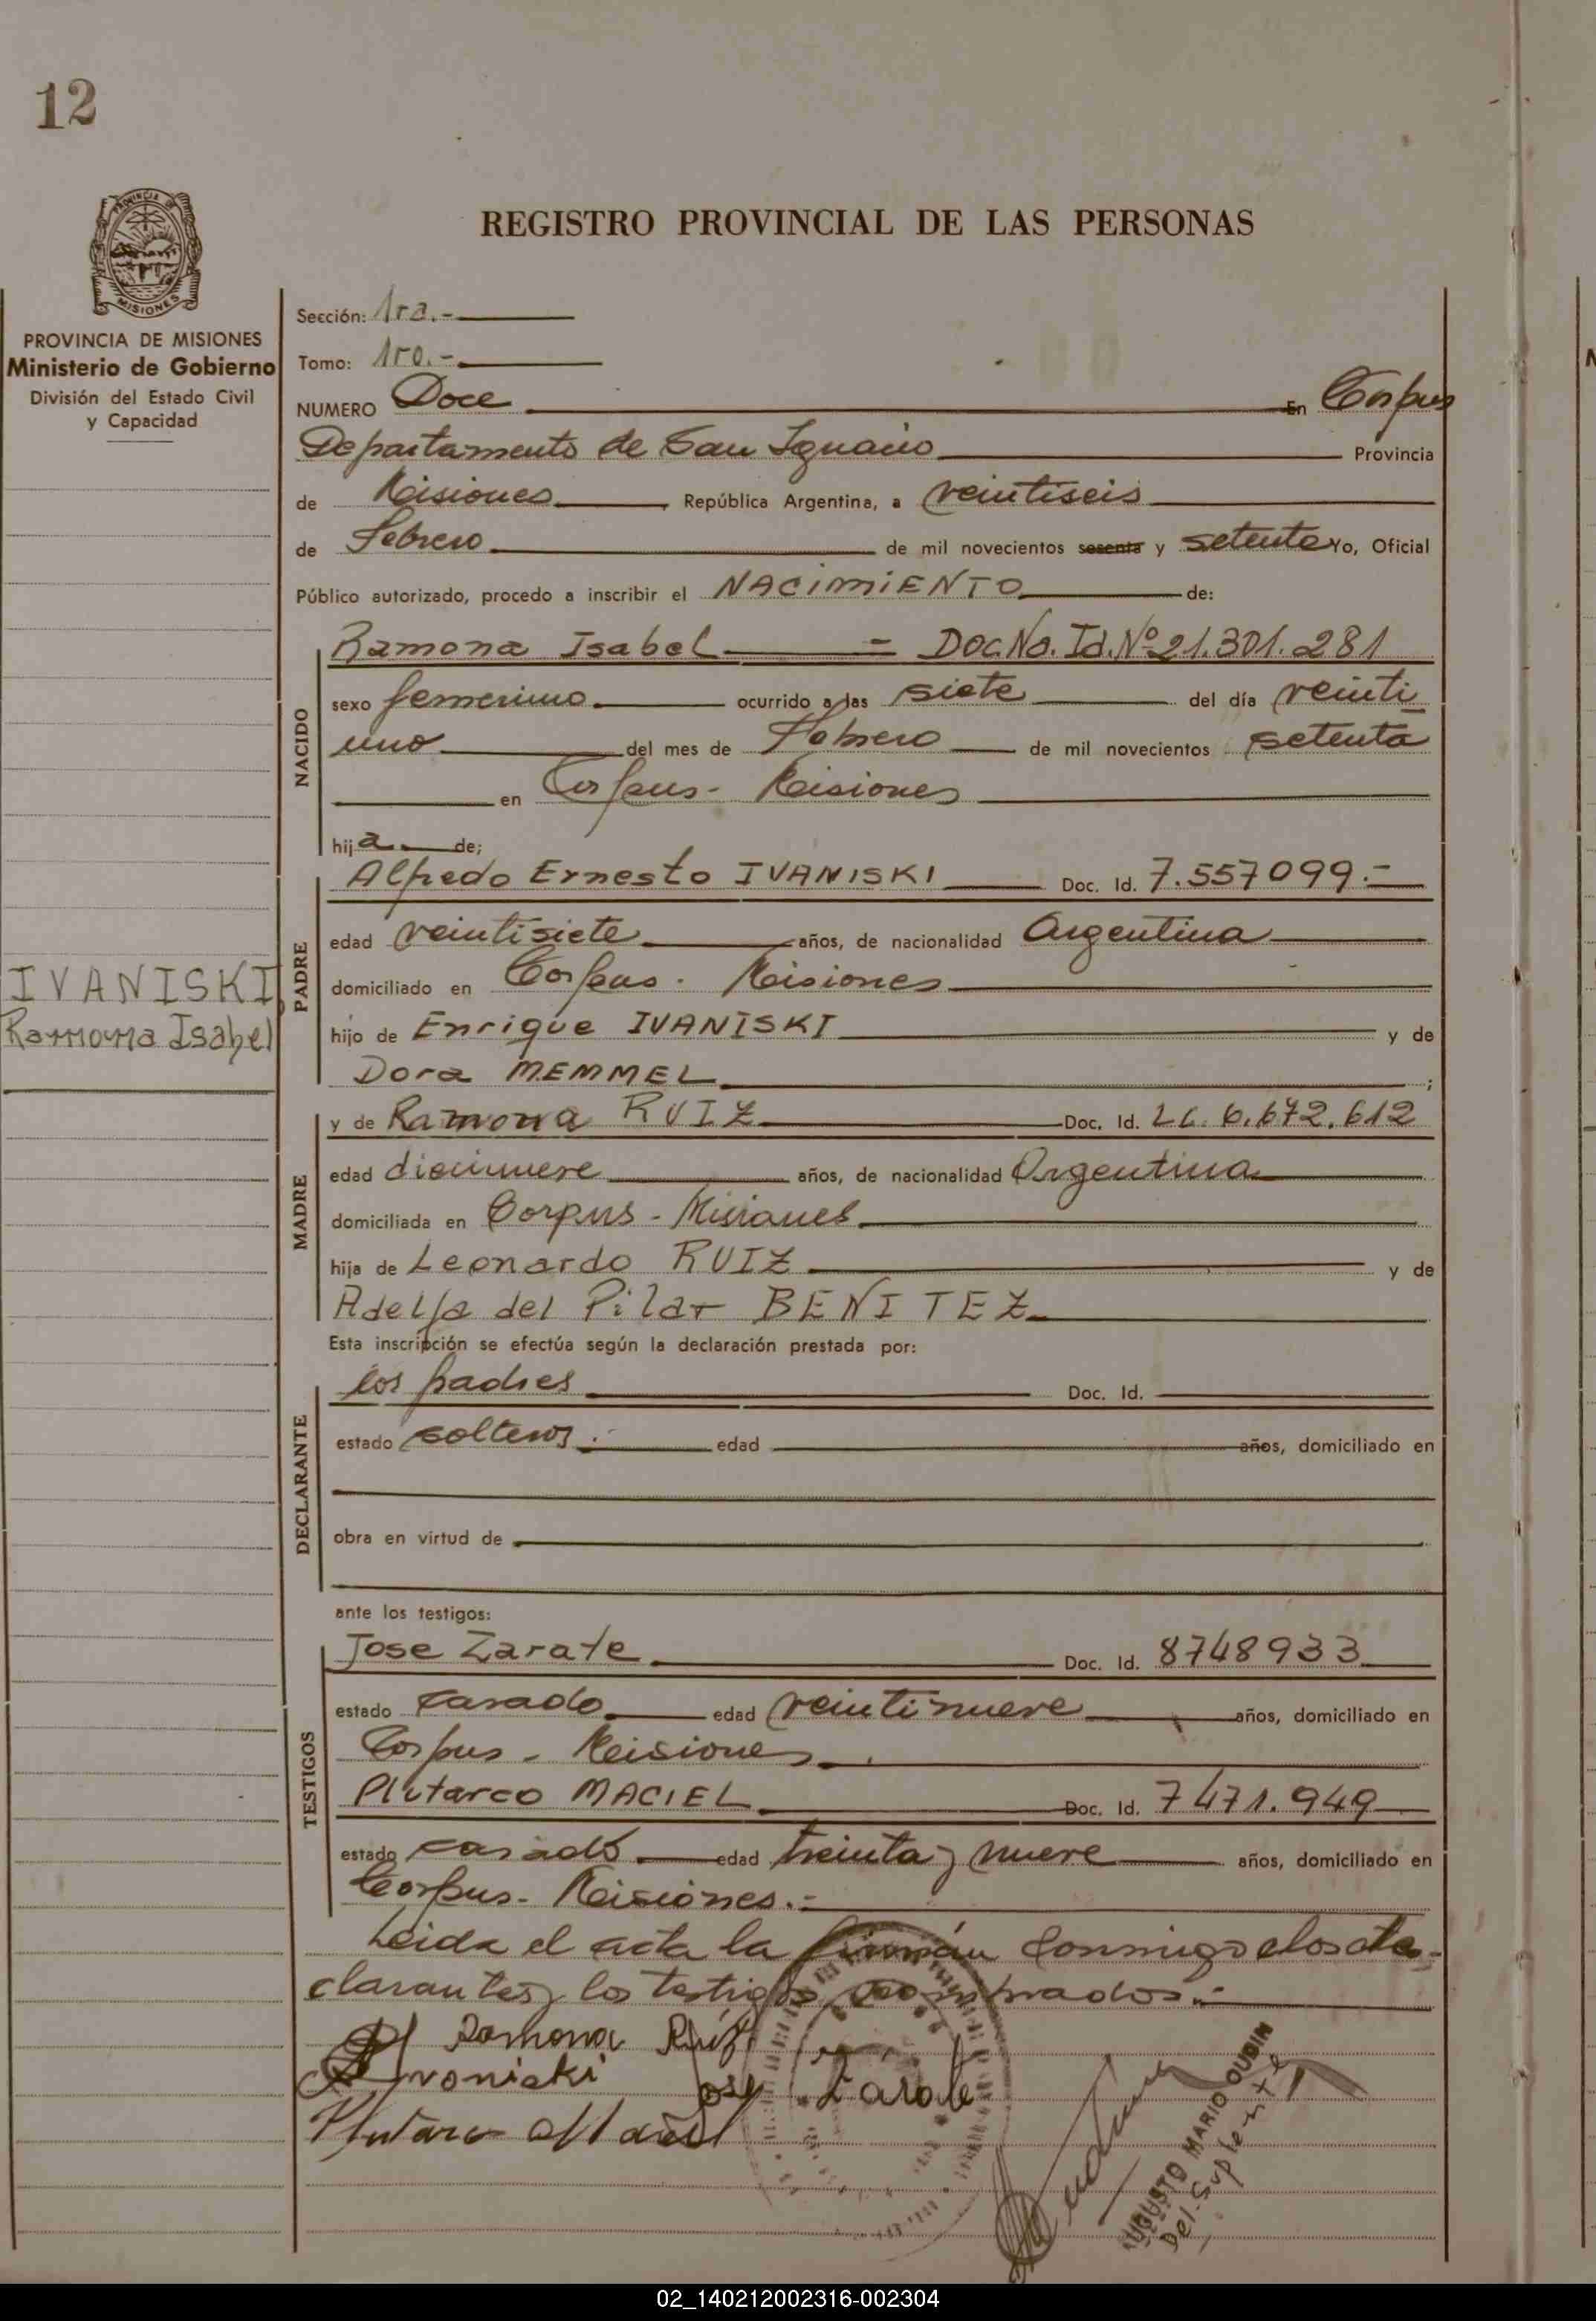 12
PROVINCIA DE
MISIONES
REGISTRO PROVINCIAL DE LAS PERSONAS
PROVINCIA DE MISIONES
Ministerio de Gobierno
División del Estado Civil
y Capacidad
Sección: 1ra.-
Tomo: 1ro.-
NUMERO Doce En Corpus
Departamento de San Ignacio Provincia
de Misiones, República Argentina, a veintiseis
de Febrero de mil novecientos sesenta y setenta Yo, Oficial
Público autorizado, procedo a inscribir el NACIMIENTO de:
NACIDO
Ramona Isabel = Doc.Na. Id. Nº 21.301.281
sexo femenino ocurrido a las siete del día veinti
uno del mes de Febrero de mil novecientos setenta
en Corpus - Misiones
hija de;
PADRE
Alfredo Ernesto IVANISKI Doc. Id. 7.557099.-
edad veintisiete años, de nacionalidad Argentina
domiciliado en Corpus - Misiones
hijo de Enrique IVANISKI y de
Dora MEMMEL ;
IVANISKI
Ramona Isabel
MADRE
y de Ramona RUIZ Doc. Id. LC. 6.672.612
edad diecinueve años, de nacionalidad Argentina
domiciliada en Corpus - Misiones
hija de Leonardo RUIZ y de
Adelfa del Pilar BENITEZ
Esta inscripción se efectúa según la declaración prestada por:
DECLARANTE
los padres Doc. Id.
estado solteros.- edad años, domiciliado en
obra en virtud de
ante los testigos:
TESTIGOS
Jose Zarate Doc. Id. 8748933
estado casado edad veintinueve años, domiciliado en
Corpus - Misiones
Plutarco MACIEL Doc. Id. 7471.949
estado casado edad treinta y nueve años, domiciliado en
Corpus - Misiones.-
Leida el acta la firman conmigo los de-
clarantes y los testigos nombrados.-
Ramona Ruiz
Ivaniski
Jose Zarate
Plutarco Maciel
AUGUSTO MARIO OUDIN
Del. Suplente
02_140212002316-002304